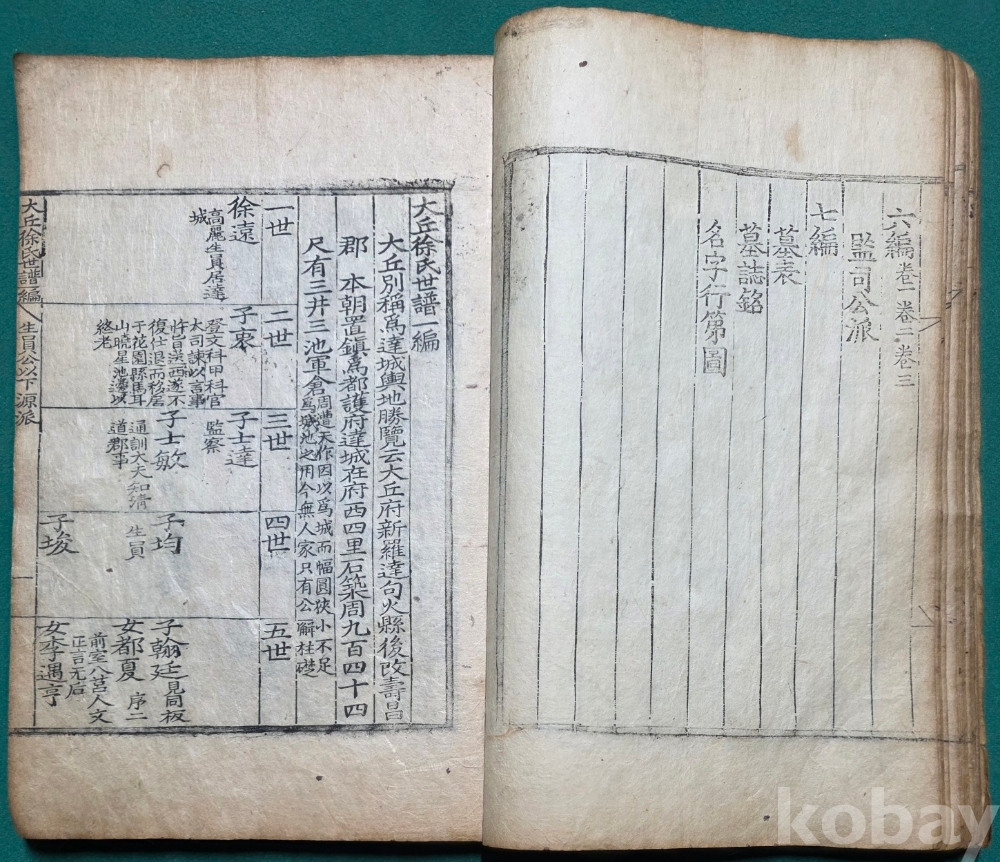 六編 卷一 卷二 卷三
監司公派
七編
墓表
墓誌銘
名字行第圖
大丘徐氏世譜一編
大丘別稱爲達城輿地勝覽云大丘府新羅達句火縣後改壽昌
郡 本朝置鎮爲都護府達城在府西四里石築周九百四十四
尺有三井三池軍倉
周遭天作因以爲城而幅圓狹小不足
爲城池之用今無人家只有公廨柱礎
一世
徐遠
高麗生員居達
城
二世
子褱
登文科甲科官
太司諫以言事
忤旨
復仕退而移居
于花園縣馬耳
山曉星池邊以
終老
三世
子士達
監察
子士敏
通訓大夫知清
道郡事
四世
子均
生員
子埈
五世
子翰廷
見同板
女都夏
序二
前室八莒人文
正言元后
女李遇亨
大丘徐氏世譜 編
生員公以下源派
一
kobay